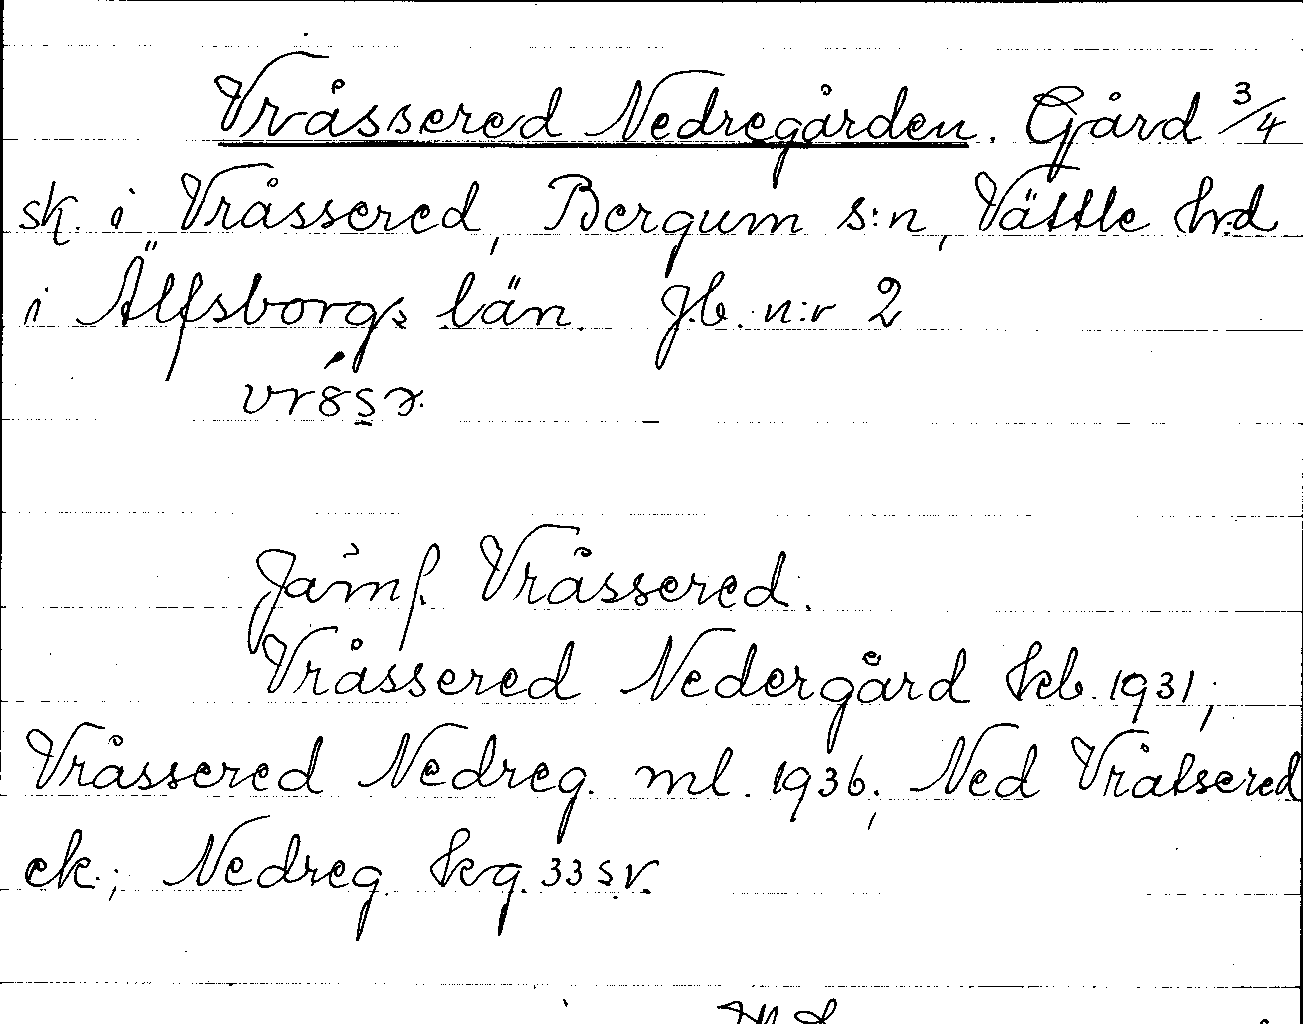 Vråssered Nedregården. Gård 3/4
sk. i Vråssered, Bergum s:n, Vättle hd
i Älfsborgs län. Jb. n:r 2
Jämf. Vråssered.
Vråssered Nedergård kb. 1931;
Vråssered Nedreg. ml. 1936; Ned Vråtsered
ek.; Nedreg. kg. 33 sv.